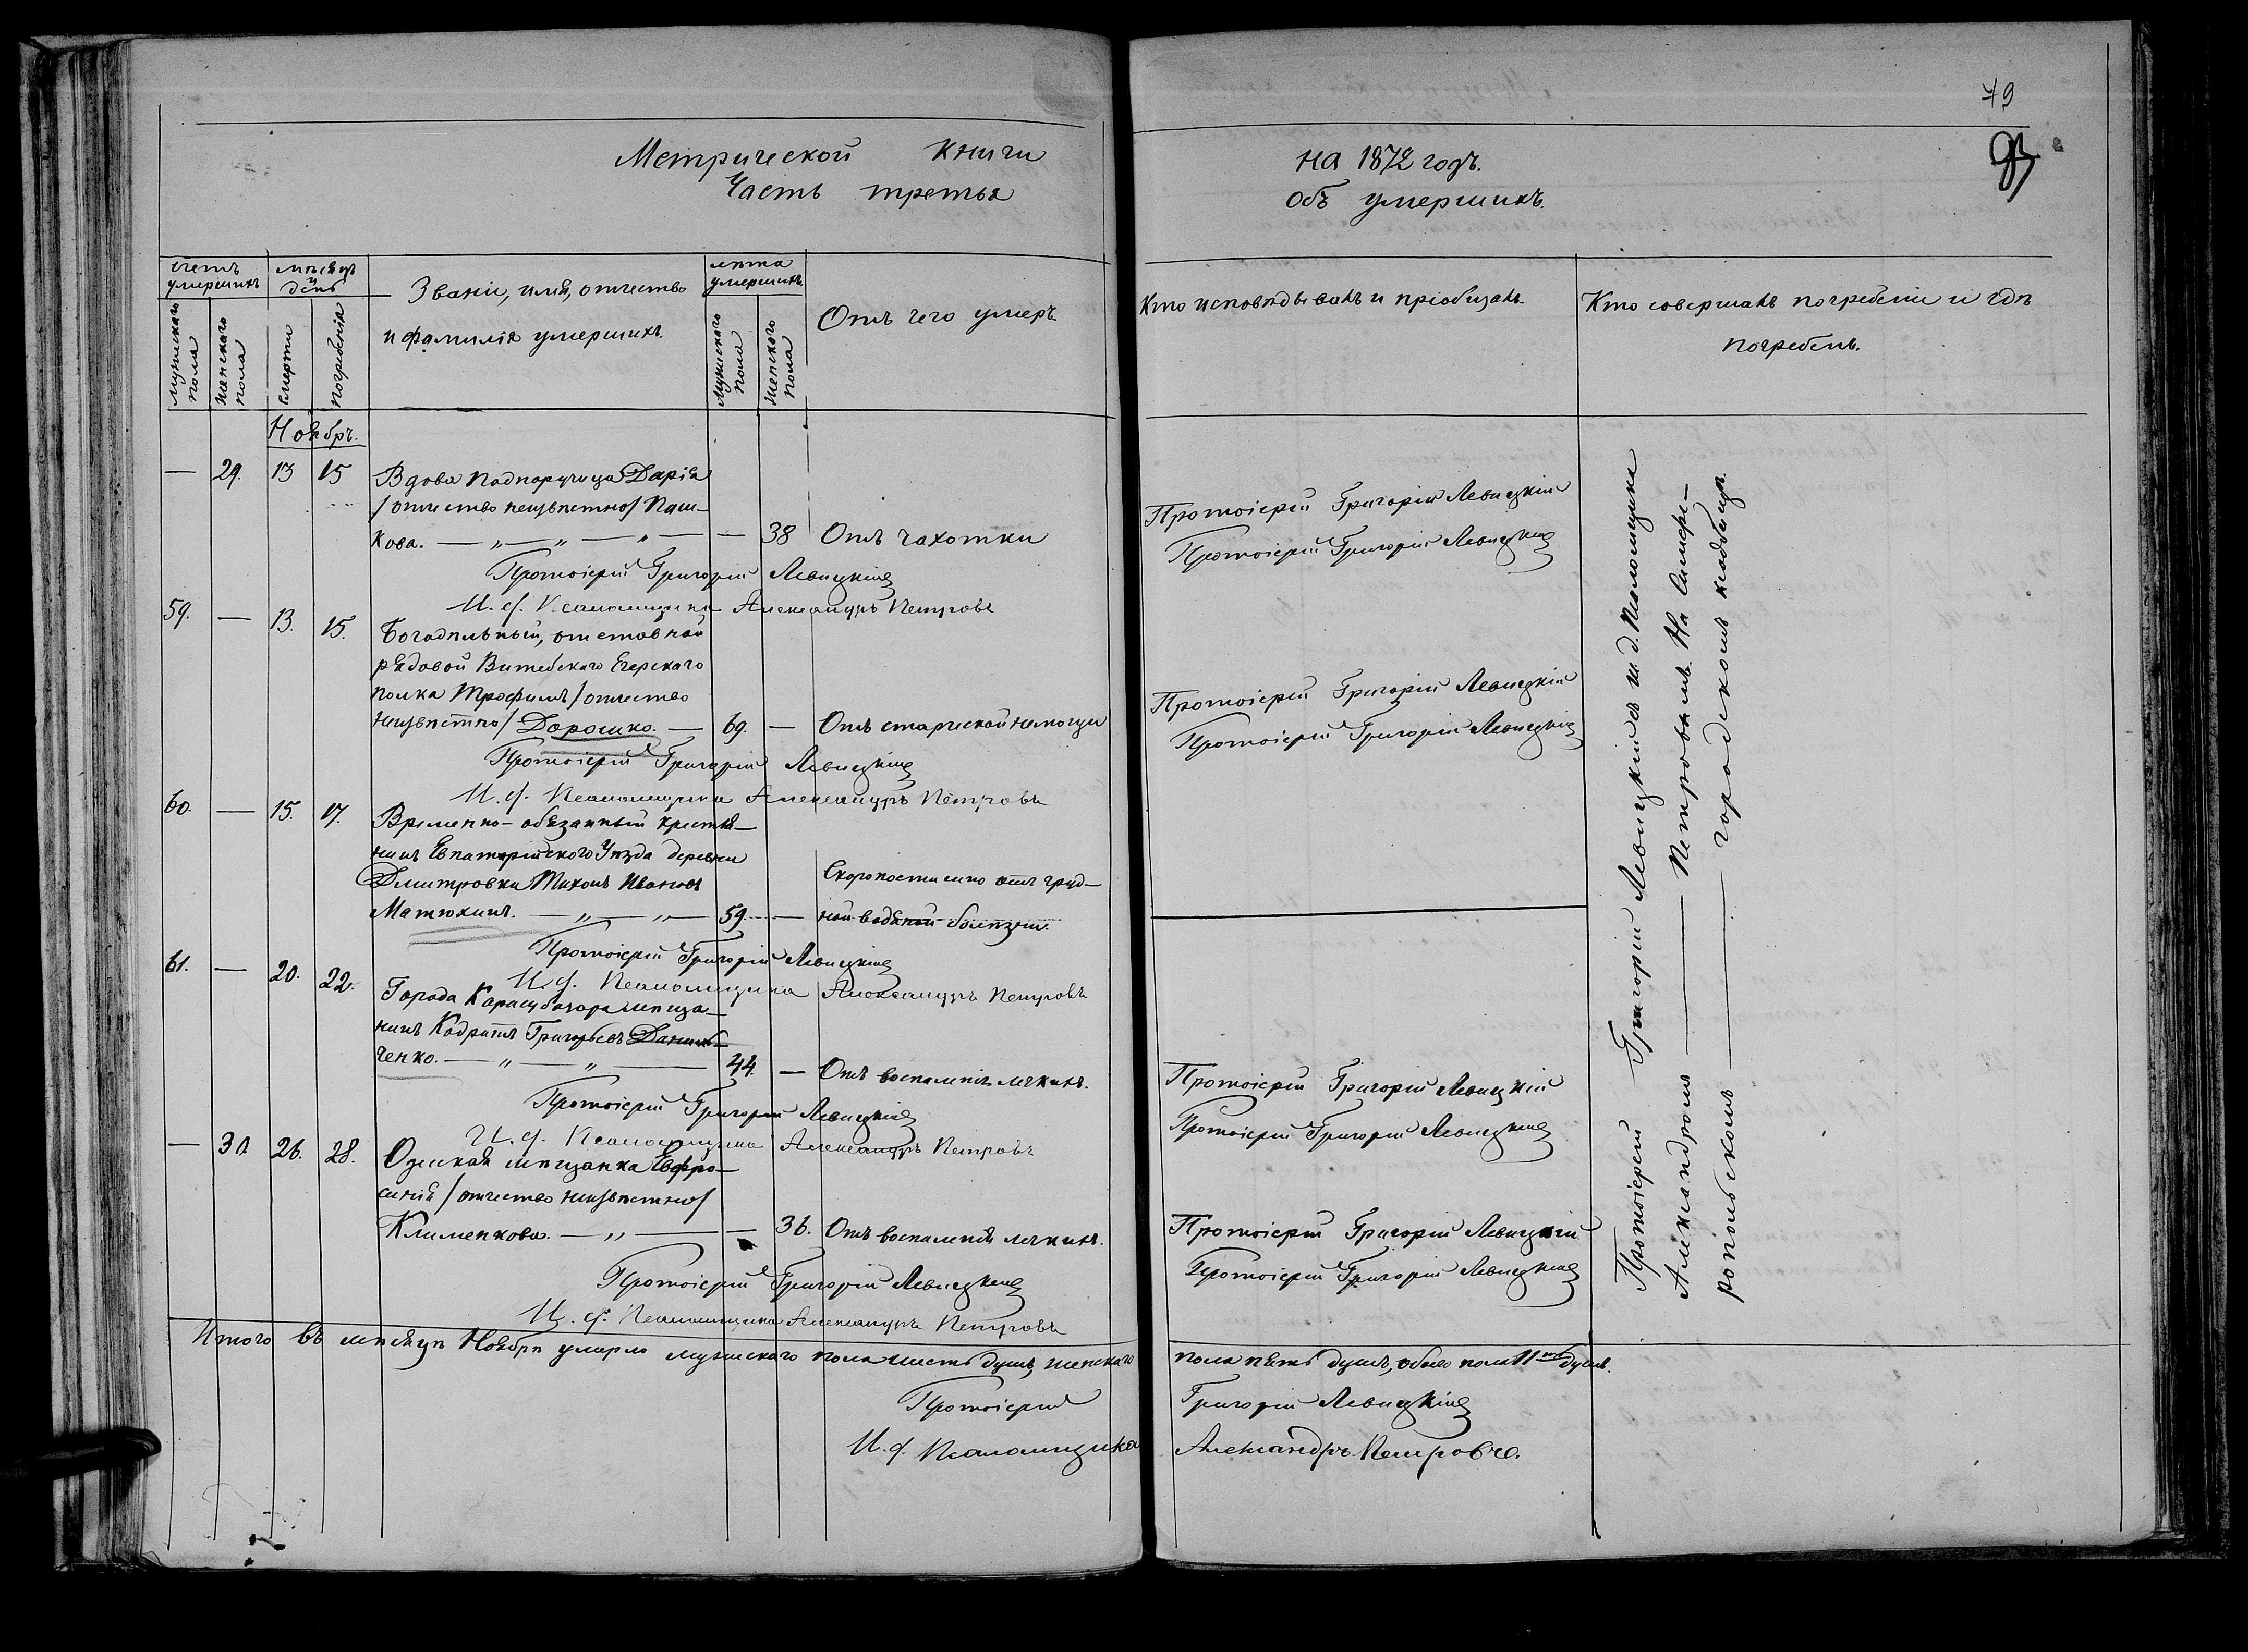 79
93
Метрической книги
Часть третья
на 1872 годъ.
объ умершихъ.
Счетъ умершихъ
мужскаго пола
женскаго пола
мѣсяцъ и день
смерти
погребенія
Званіе, имя, отчество
и фамилія умершихъ.
лѣта умершихъ
мужскаго пола
женскаго пола
Отъ чего умеръ.
Кто исповѣдывалъ и пріобщалъ.
Кто совершалъ погребеніе и гдѣ
погребенъ.
Ноябрь.
— 29. 13 15 Вдова Подпоручица Дарія
/отчество неизвѣстно/ Паш-
кова. — „ — „ — „ — — 38 Отъ чахотки
Протоіерей Григорій Левицкій
И. д. Псаломщика Александръ Петровъ
Протоіерей Григорій Левицкій
Протоіерей Григорій Левицкій
59. — 13. 15. Богадѣльный, отставной
рядовой Витебскаго Егерскаго
полка Трофимъ /отчество
неизвѣстно/ Дорошко. — 69. — Отъ старческой немощи
Протоіерей Григорій Левицкій
И. д. Псаломщика Александръ Петровъ
Протоіерей Григорій Левицкій
Протоіерей Григорій Левицкій
60. — 15. 17. Временно-обязанный крестья-
нинъ Евпаторійскаго Уѣзда деревни
Дмитровки Тихонъ Ивановъ
Матюхинъ. — „ — „ — 59. — Скоропостижно отъ груд-
ной водяной болѣзни.
Протоіерей Григорій Левицкій
И. д. Псаломщика Александръ Петровъ
61. — 20. 22. Города Карасубазара мѣща-
нинъ Кодратъ Григорьевъ Даниль-
ченко. — „ — „ — 44. — Отъ воспаленія легкихъ.
Протоіерей Григорій Левицкій
И. д. Псаломщика Александръ Петровъ
Протоіерей Григорій Левицкій
Протоіерей Григорій Левицкій
— 30 26. 28. Одеская мѣщанка Евфро-
синія /отчество неизвѣстно/
Клименкова. — „ — — 36. Отъ воспаленія легкихъ.
Протоіерей Григорій Левицкій
И. д. Псаломщика Александръ Петровъ
Протоіерей Григорій Левицкій
Протоіерей Григорій Левицкій
Протоіерей Григорій Левицкій съ и. д. Псаломщика
Александромъ — Петровымъ. На Симфе-
ропольскомъ — городскомъ кладбищѣ.
Итого въ мѣсяцѣ Ноябрѣ умерло мужскаго пола шесть душъ, женскаго
пола пять душъ, обоего пола 11ть душъ.
Протоіерей Григорій Левицкій
И. д. Псаломщика Александръ Петровъ.